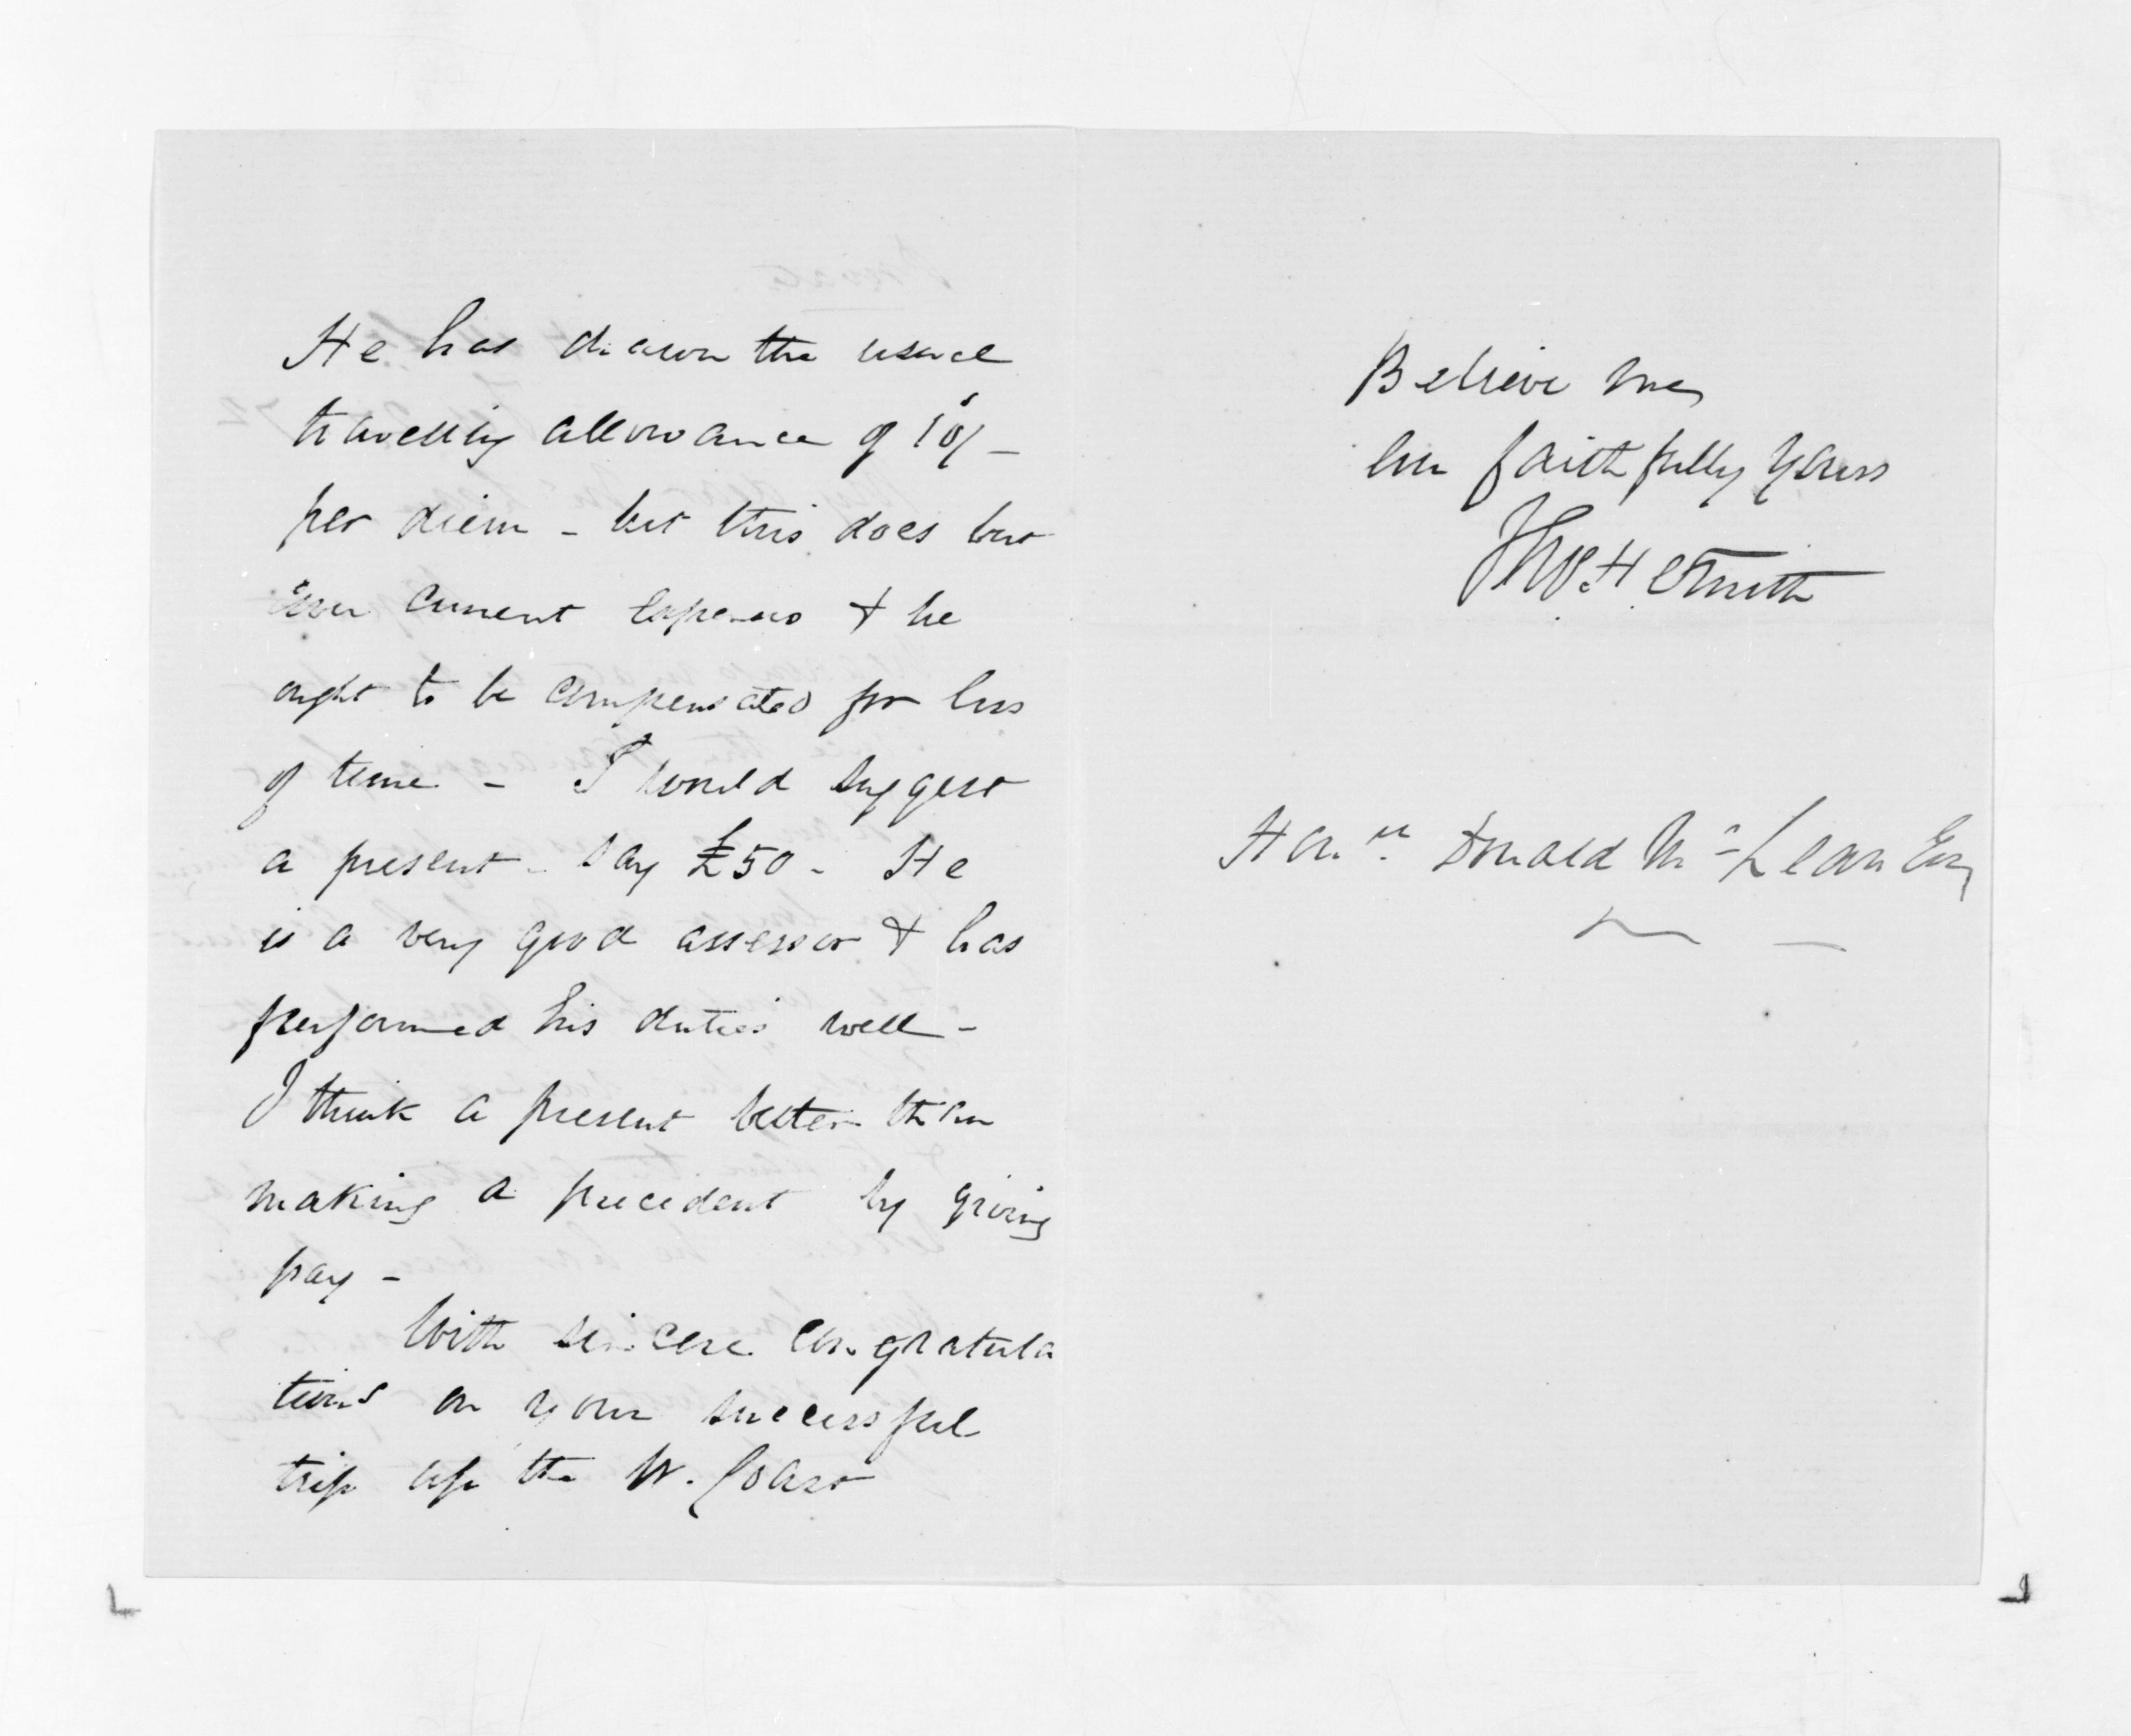 He has drawn the usual
travelling allowance of 10/-
per diem - but this does but
cover current expenses & he
ought to be compensated for loss
of time - I would suggest
a present - say £50 - He
is a very good assessor & has
performed his duties well -
I think a present better than
making a precedent by giving
pay -
With sincere congratula
tions on your successful
trip up the W. Coast
Believe me,
faithfully yours
H Smith
Hon. Donald McLean Esq